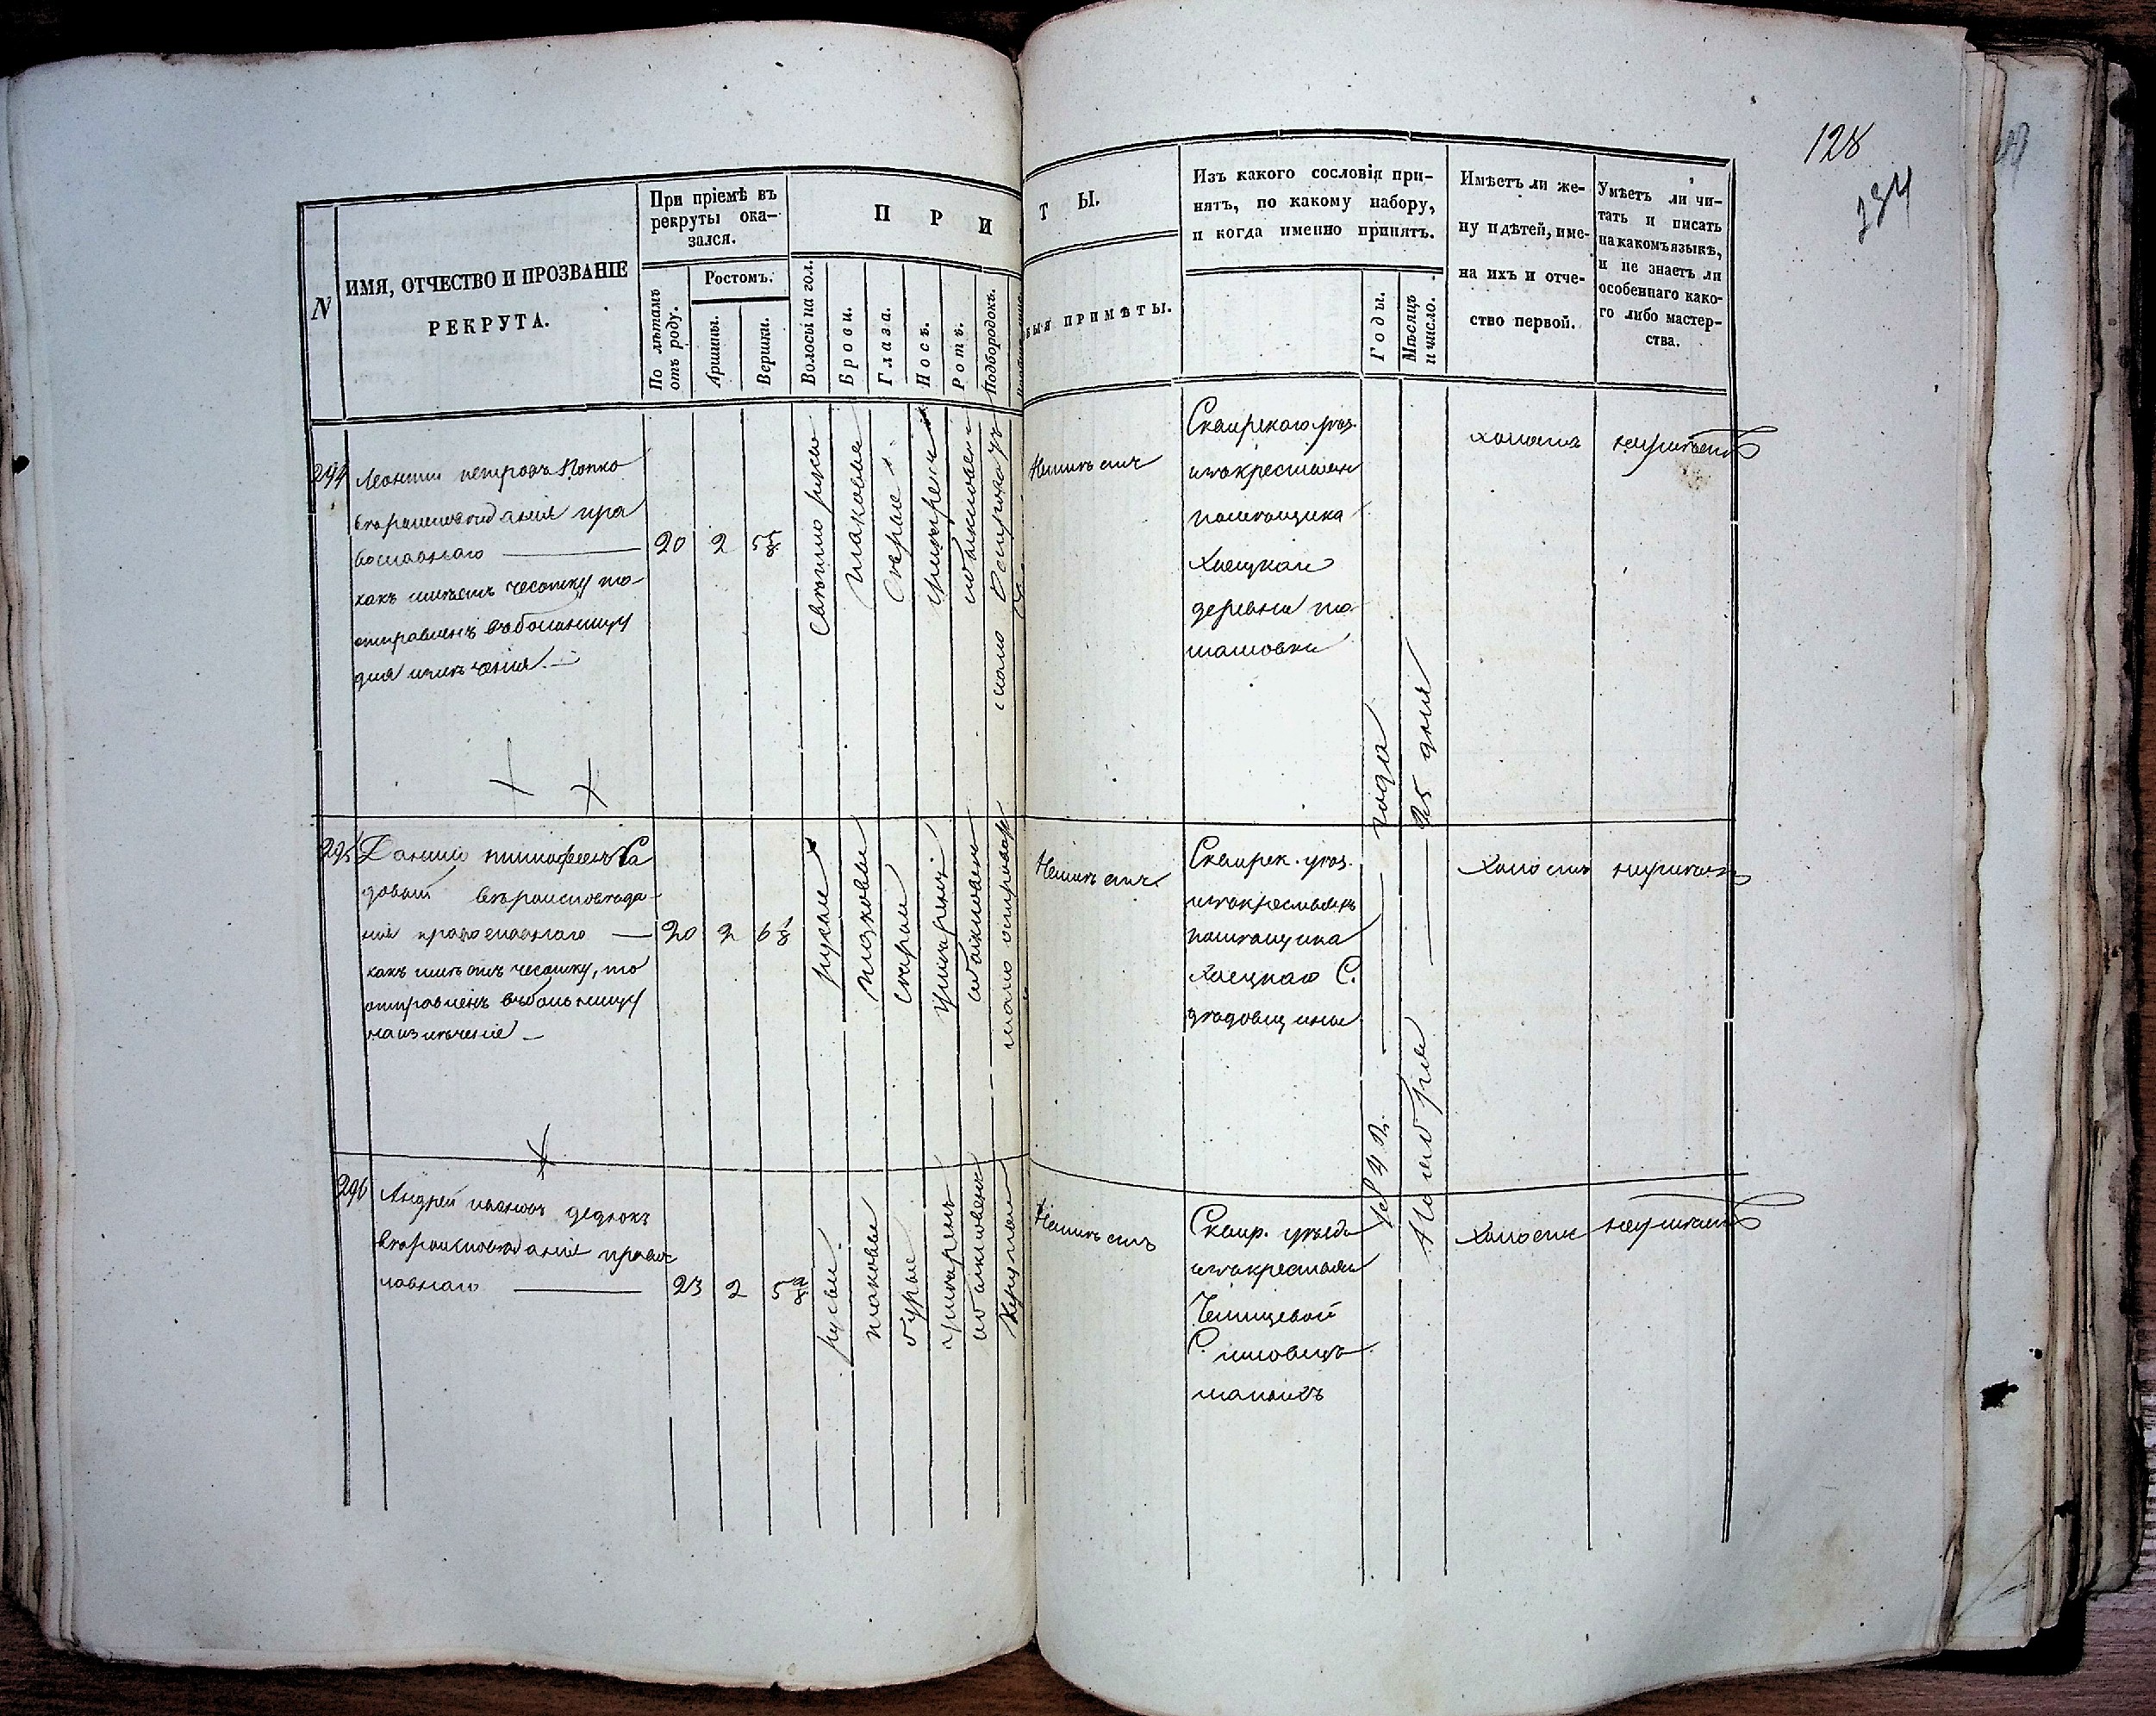 128
234
N
ИМЯ, ОТЧЕСТВО И ПРОЗВАНІЕ
РЕКРУТА.
При пріемѣ въ
рекруты ока-
зался.
По лѣтамъ
отъ роду.
Ростомъ.
Аршины.
Вершки.
П Р И
Волосы на гол.
Брови.
Глаза.
Носъ.
Ротъ.
Подбородокъ.
Т Ы.
ЫЯ ПРИМѢТЫ.
Изъ какого сословія при-
нятъ, по какому набору,
и когда именно принятъ.
Годы.
Мѣсяцъ
и число.
Имѣетъ ли же-
ну и дѣтей, име-
на ихъ и отче-
ство первой.
Умѣетъ ли чи-
тать и писать
на какомъ языкѣ,
и не знаетъ ли
особеннаго како-
го либо мастер-
ства.
294
Леонтій петровъ Попко
вѣроисповѣданія пра
вославнаго
какъ имѣетъ чесотку то
отправленъ въ больницу
для излѣченія.
20
2
5 5/8
свѣтло русы
таковые
сѣрые
умѣрен
обыкновен
мало
Неимѣетъ
Сквирскаго уѣз.
изъ крестьян
помѣщика
Хоецкаго
деревни
холостъ
неумѣетъ
295
Даніил тимофеевъ Са
довый вѣроисповѣда
нія православнаго
какъ имѣетъ чесотку, то
отправленъ въ больницу
на излѣченіе
20
2
6 1/8
русые
таковые
сѣрые
умѣрен
обыкновен
мало
Неимѣетъ
Сквирск. уѣз.
изъ крестьянъ
помѣщика
Хоецкаго С.
холостъ
неумѣетъ
296
Андрей ивановъ дедюкъ
вѣроисповѣданія правос
лавнаго
23
2
русые
таковые
бурые
умѣрен
обыкновен
круглый
Неимѣетъ
Сквир. уѣзда
изъ крестьян
Челищевой
С.
холостъ
неумѣетъ
года
25 дня
Ноября